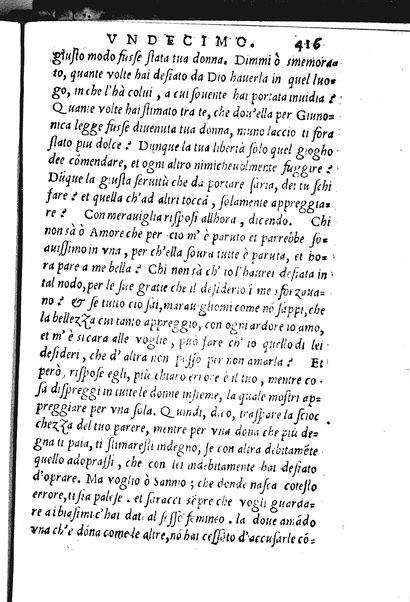 VNDECIMO. 416
giusto modo fusse stata tua donna. Dimmi ò smemora-
to, quante volte hai desiato da Dio hauerla in quel luo-
go, in che l'hà colui, a cui souente hai portata inuidia?
Quante volte hai stimato tra te, che dou'ella per Giuno-
nica legge fusse diuenuta tua donna, niuno laccio ti fora
stato piu dolce? Dunque la tua libertà solo quel giogho
dee cōmendare, et ogni altro nimicheuolmente fuggire?
Dūque la giusta seruitù che da portare saria, dei tu schi
fare? et quella ch'ad altri tocca, solamente appreggia-
re? Con merauiglia risposi allhora, dicendo. Chi
non sà ò Amore che per ciò m'è paruto et parrebbe so-
auissimo in vna, per ch'ella soura tutte è paruta, et ho-
ra pare a me bella? Chi non sà ch'io l'haurei desiata in
tal nodo, per le sue gratie che il desiderio i me sforzaua-
no? & se tutto ciò sai, marauigliomi come nō sappi, che
la bellezza cui tanto appreggio, con ogni ardore io amo,
et m'è si cara alle voglie, può fare ch'io quello di lei
desideri, che d'altra non posso per non amarla? Et
però, rispose egli, più chiaro errore è il tuo, mentre co-
sa dispreggi in tutte le donne insieme, la quale mostri ap-
preggiare per vna sola. Quindi, dico, traspare la scioc
chezza del tuo parere, mentre per vna dōna che più de-
gna ti paia, ti stimaresti indegno, se con altra debitamēte
quello adoprassi, che con lei indebitamente hai desiato
d'oprare. Ma voglio ò Sannio; che donde nasca cotesto
errore, ti sia palese. et saracci sēpre che vogli guarda-
re a i biasimi c'hai dati al sesso femineo. la doue amādo
vna ch'è dōna come le altre, nō hai cessato d'accusarle cō-